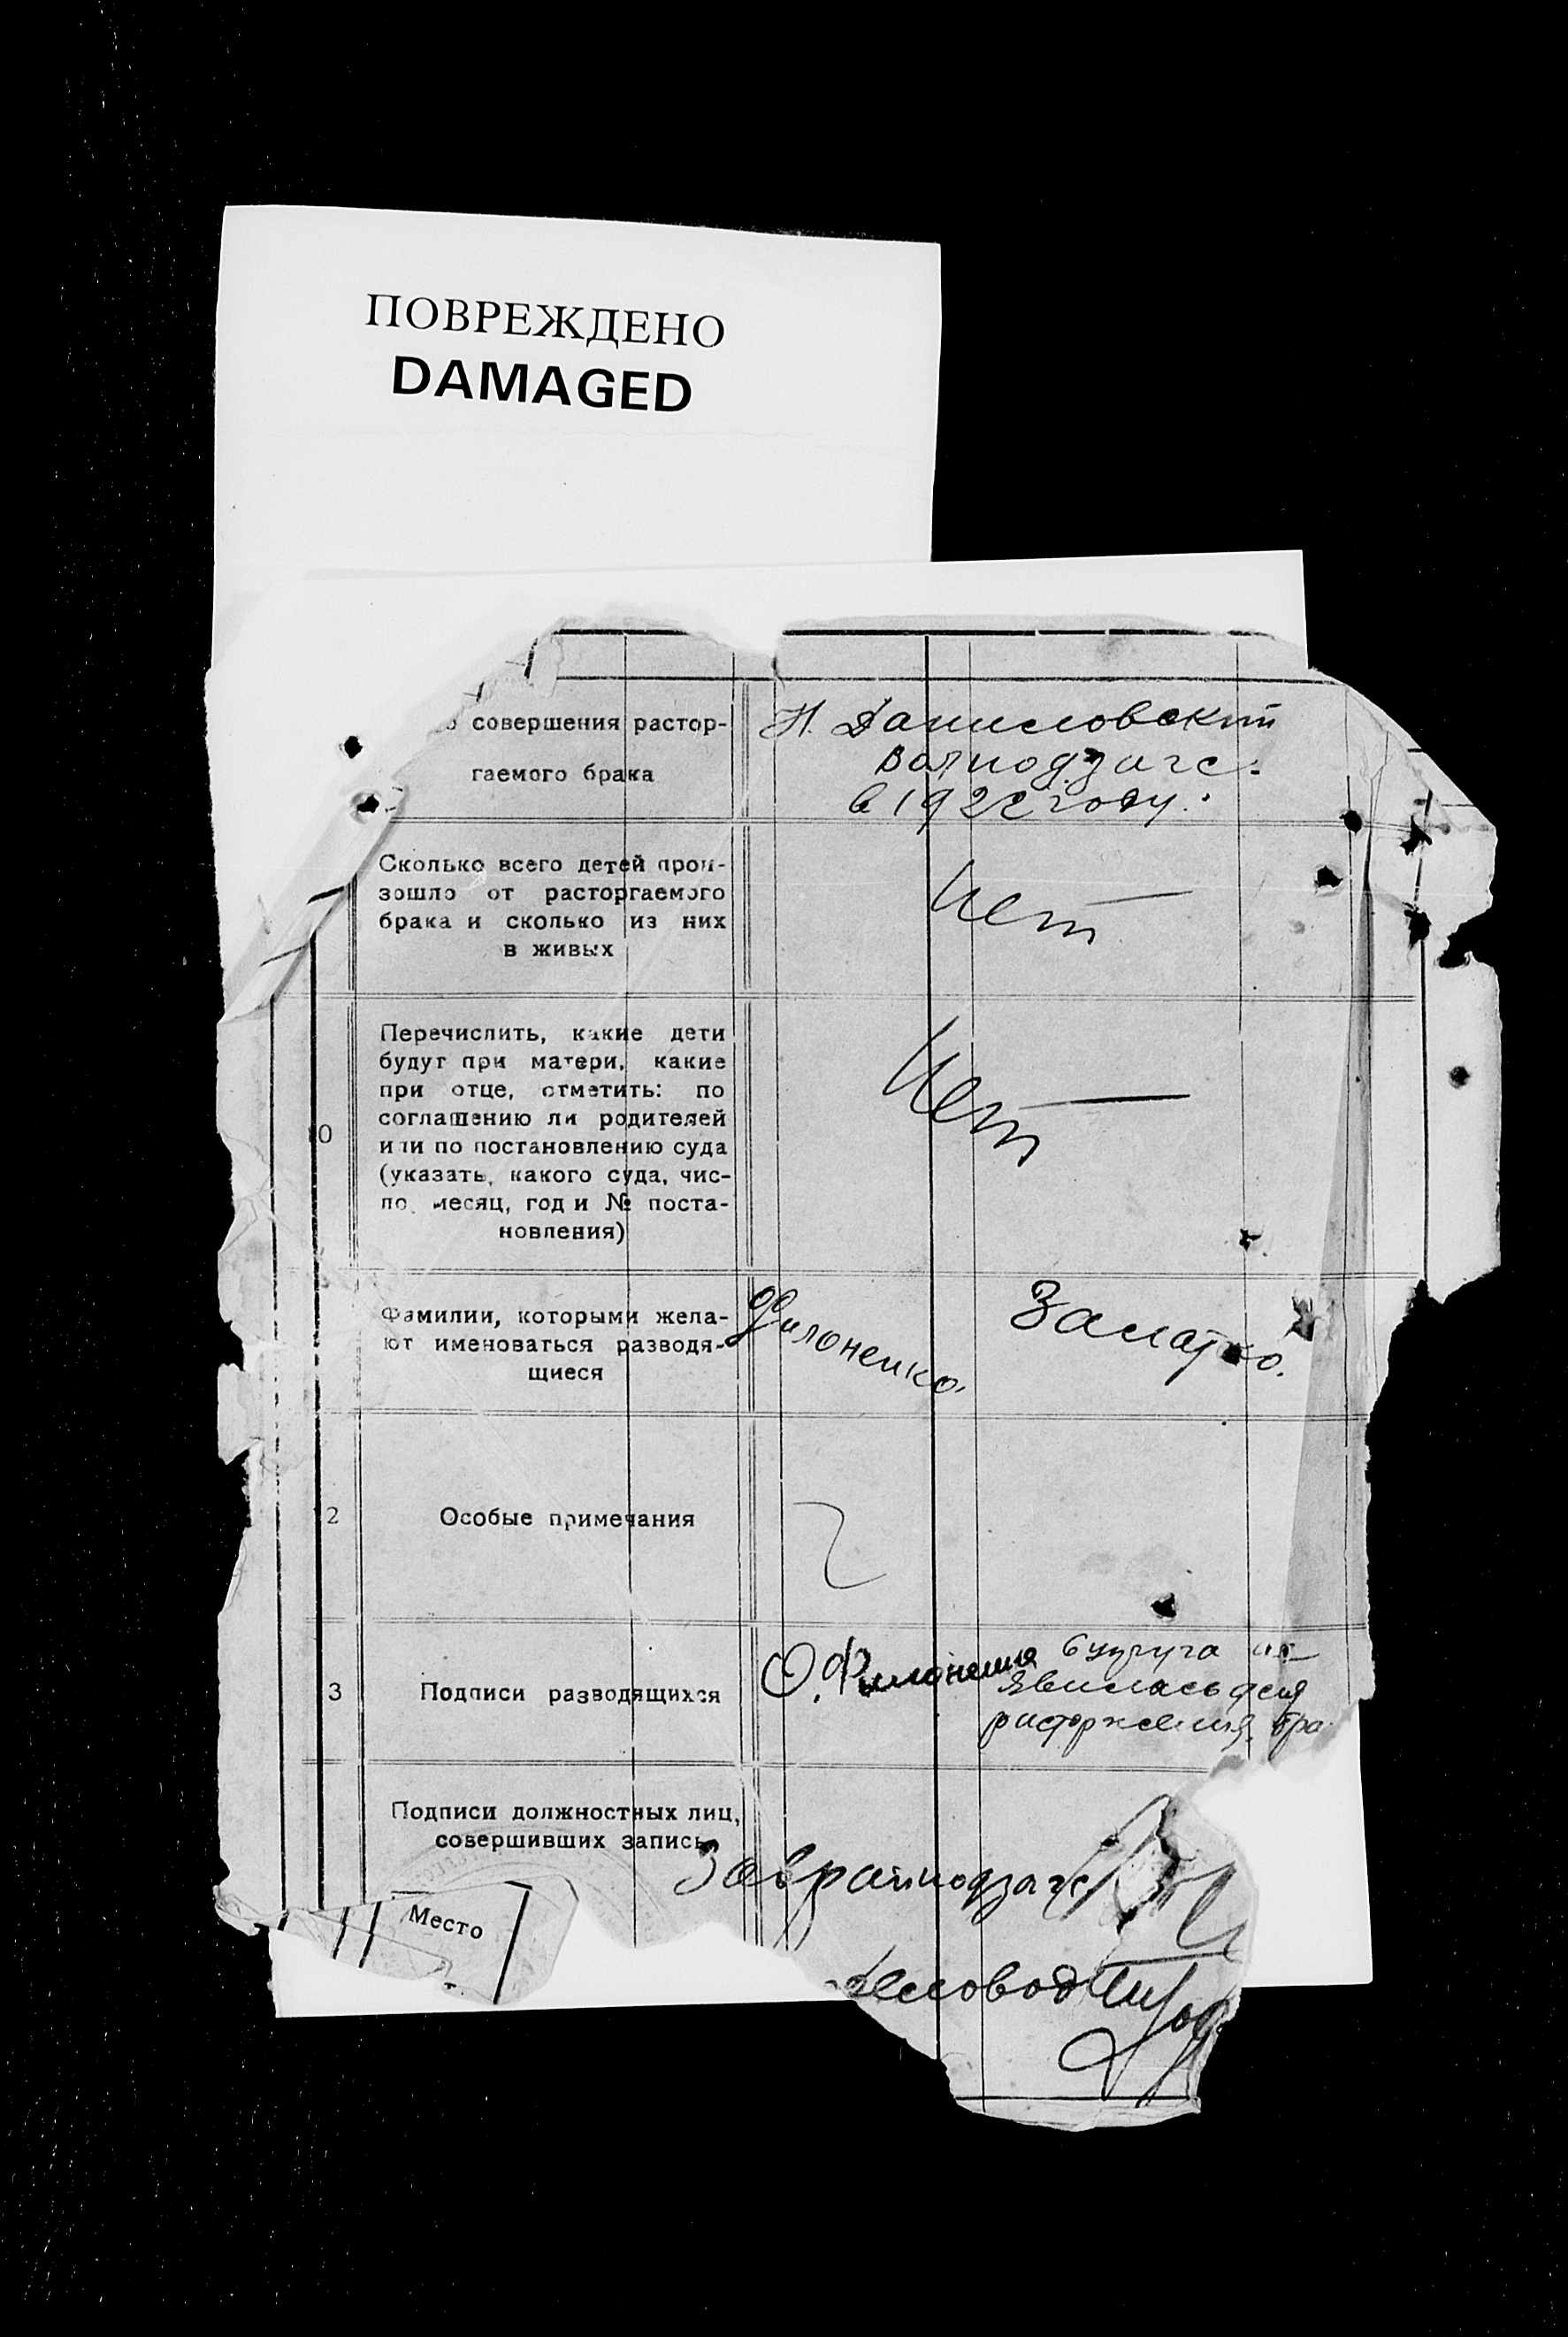 ПОВРЕЖДЕНО
DAMAGED
совершения растор-
гаемого брака
Н. Даниловский
в 1922 году.
Сколько всего детей прои-
зошло от расторгаемого
брака и сколько из них
в живых
Нет
10
Перечислить, какие дети
будут при матери, какие
при отце, отметить: по
соглашению ли родителей
или по постановлению суда
(указать, какого суда, чис-
ло, месяц, год и № поста-
новления)
Нет
Фамилии, которыми жела-
ют именоваться разводя-
щиеся
Филоненко.
2
Особые примечания
3
Подписи разводящихся
О. Филоненко
Супруга не
явилась для
расторжения бра
Подписи должностных лиц,
совершивших запись
Заврайподзагс
Место
деловод